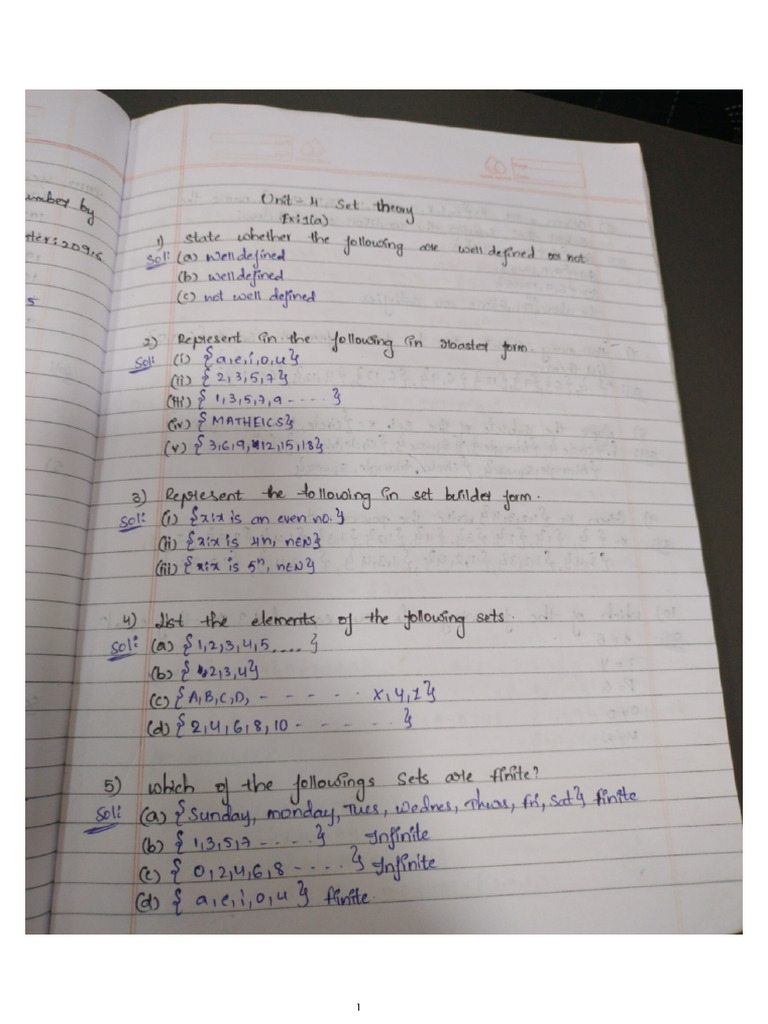 umber by
5
Unit - 4 Set theory
Ex:1(a)
1) State whether the following are well defined or not
Sol: (a) Well defined
(b) well defined
(c) not well defined
2) Represent in the following in roaster form.
Sol: (i) {a,e,i,o,u}
(ii) {2,3,5,7}
(iii) { 1,3,5,7,9 ..... }
(iv) { MATHEICS}
(v) { 3,6,9,12,15,18}
3) Represent the following in set builder form.
Sol: (i) {x:x is an even no.}
(ii) {x:x is 4n, n∈N}
(iii) {x:x is 5ⁿ, n∈N}
4) List the elements of the following sets.
Sol: (a) {1,2,3,4,5.....}
(b) {2,3,4}
(c) {A,B,C,D, - - - - - . X,Y,Z}
(d) {2,4,6,8,10 - - - - - . .}
5) which of the followings Sets are finite?
Sol: (a) {Sunday, monday, Tues, Wednes, Thurs, Fri, Sat} finite
(b) { 1,3,5,7 - ....} Infinite
(c) { 0,2,4,6,8 - ....} Infinite
(d) { a,e,i,o,u } finite.
1